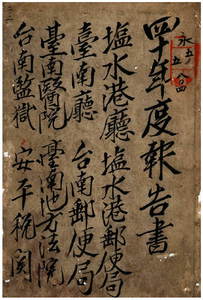 四十年度報告書
塩水港廳 塩水港郵便局
臺南廳 台南郵便局
臺南醫院 臺南地方法院
台南監獄 安平税関